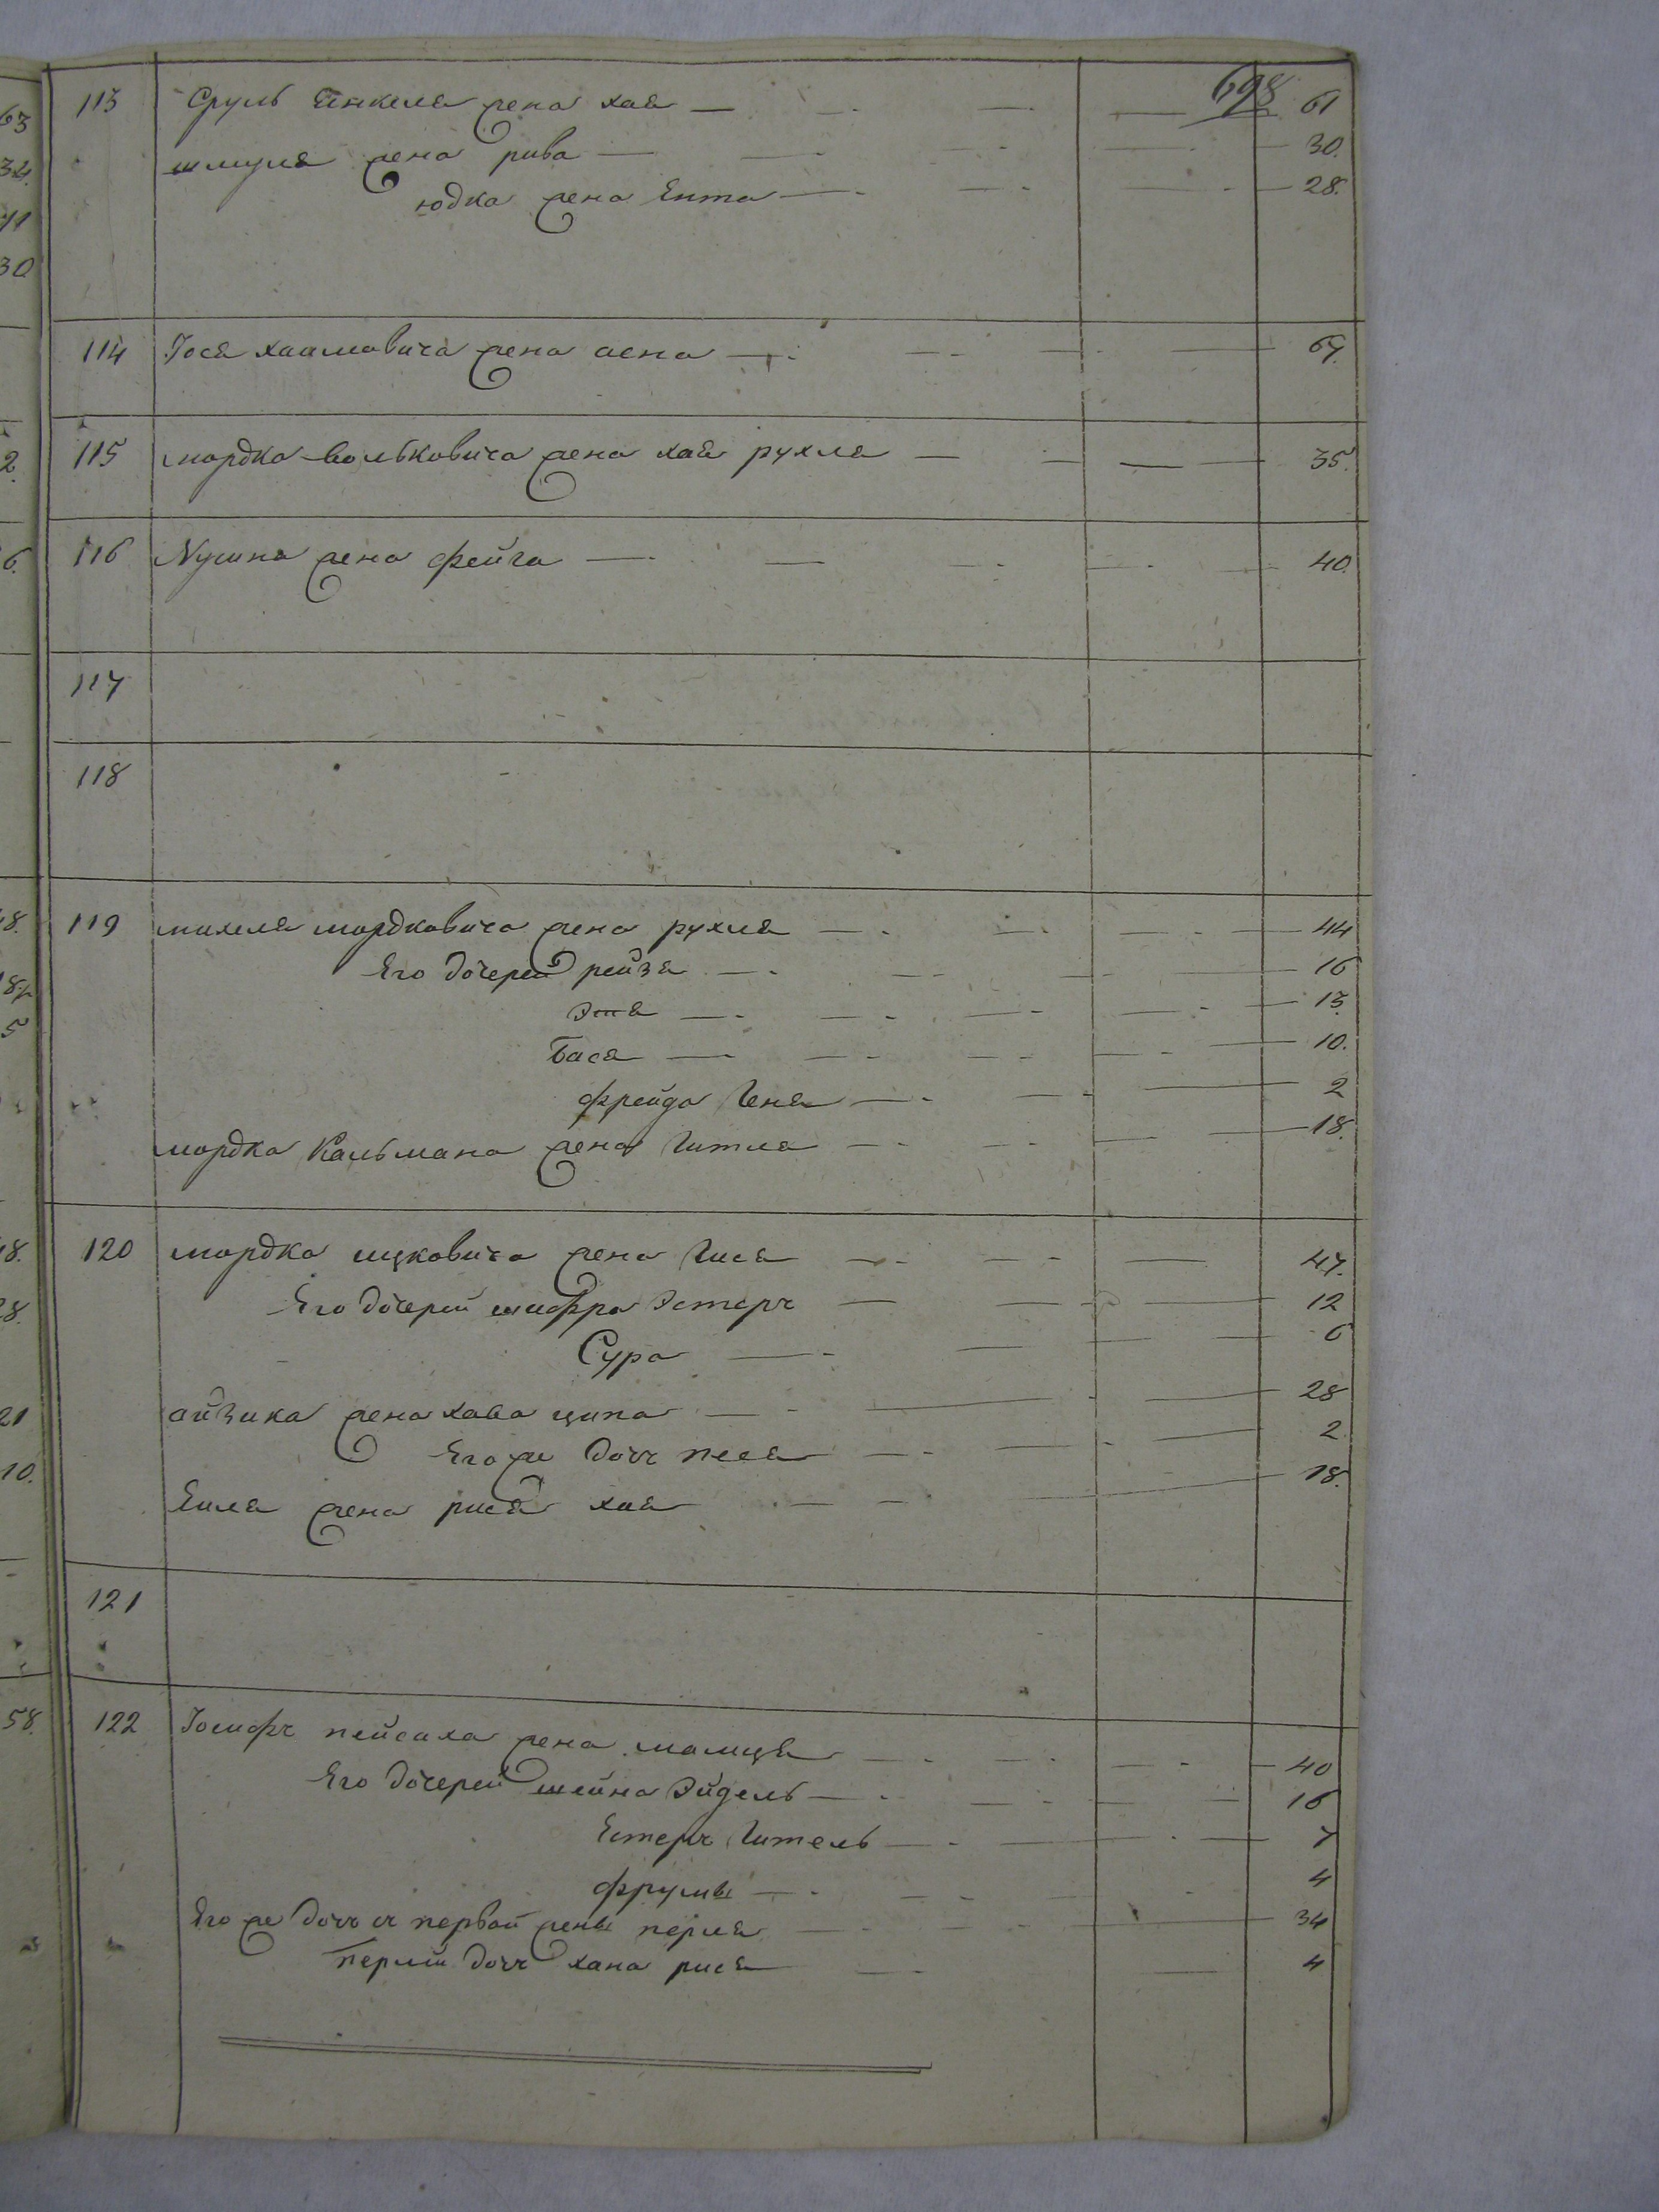 698
113 Сруль Янкеля жена хая — 61
шмуля жена рива — 30.
юдка жена Ента — 28.
114 Иося хаимовича жена — 67.
115 мордка вольковича жена хая рухля — 35.
116 Нусина жена фейга — 40.
117
118
119 михеля мордковича жена рухля — 44
Его дочерей рейзя — 16
Этя — 13.
Бася — 10.
фрейда Геня — 2
мордка Кальмана жена Гитля — 18.
120 мордка ицковича жена Гися — 47.
Его дочерей шифра Эстеръ — 12
Сура — 6
айзика жена хава ципа — 28
Его же дочь песя — 2
Еиля жена рися хая — 18.
121
122 Иосифъ пейсаха жена малця — 40
Его дочерей шейна Эйдель — 16
Естеръ Гитель — 7
фрумы — 4
Его же дочь съ первой жены перля — 34
перли дочь хана рися — 4
63
34.
41
30
2.
6.
18.
5
18.
28.
21
10.
58.